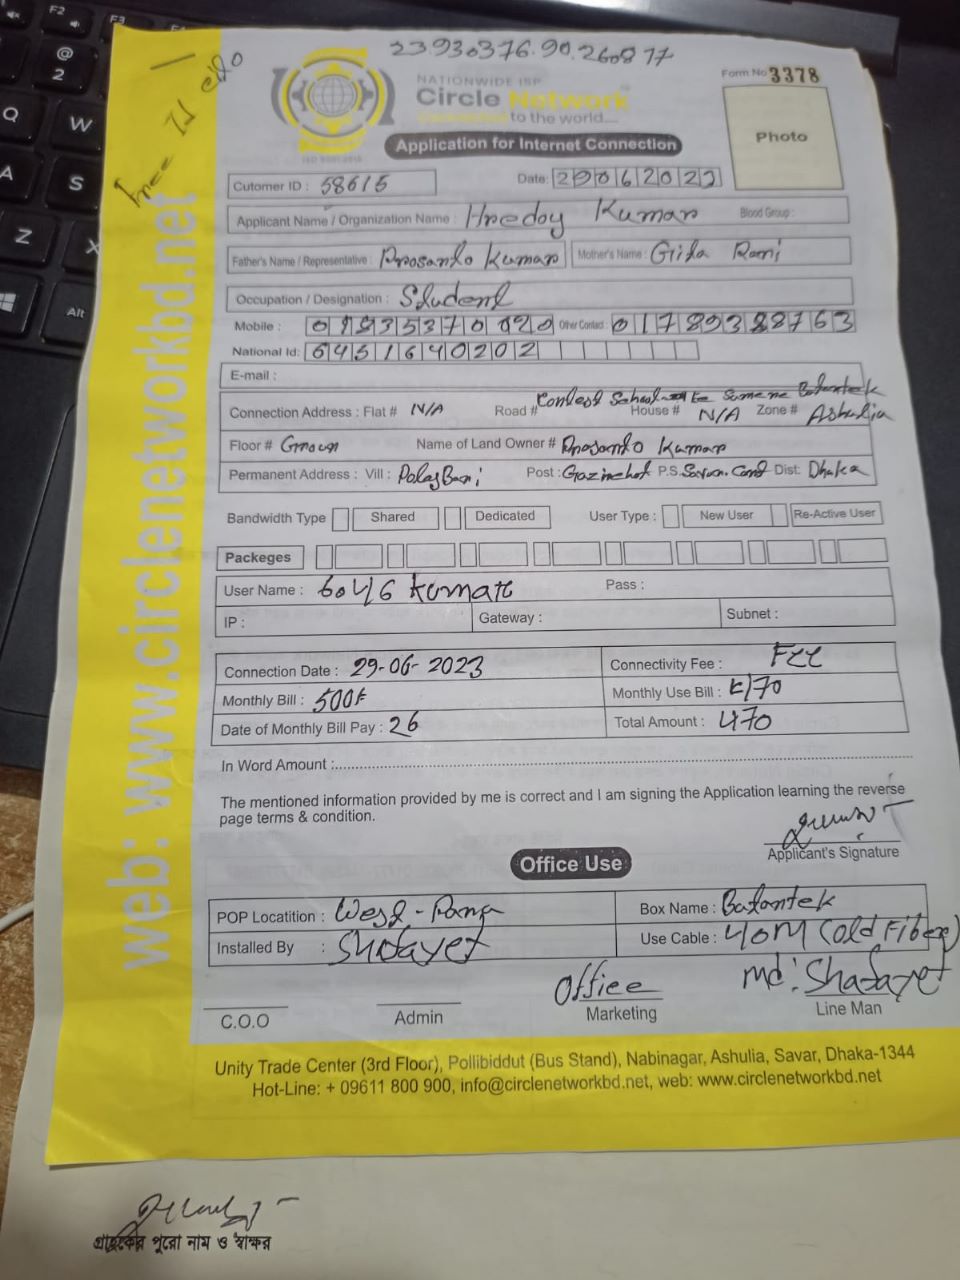 23.930376.90.260877
NATIONWIDE ISP
Form No 3378
Circle Network
to the world....
ISO 9001:2015
Application for Internet Connection
Photo
Cutomer ID : 58615
Date: 29062023
Applicant Name / Organization Name : Hredoy Kumar Blood Group :
Father's Name / Representative : Prosanto Kumar Mother's Name : Gita Rani
Occupation / Designation : Student
Mobile : Other Contact :
National Id: 6451640202
E-mail :
Connection Address : Flat # N/A Road # School House # N/A Zone # Ashulia
Floor # Ground Name of Land Owner # Prosanto Kumar
Permanent Address : Vill : Palas Bari Post : Gazirchat P.S. Dist: Dhaka
Bandwidth Type Shared Dedicated User Type : New User Re-Active User
Packeges
User Name : Pass :
IP : Gateway : Subnet :
Connection Date : 29-06-2023 Connectivity Fee :
Monthly Bill : 500 Monthly Use Bill :
Date of Monthly Bill Pay : 26 Total Amount : 470
In Word Amount :
The mentioned information provided by me is correct and I am signing the Application learning the reverse
page terms & condition.
Applicant's Signature
Office Use
POP Locatition : West - Box Name : Batantek
Installed By : Shadayet Use Cable : 40M (old Fiber)
Office Md: Shadayet
C.O.O Admin Marketing Line Man
Unity Trade Center (3rd Floor), Pollibiddut (Bus Stand), Nabinagar, Ashulia, Savar, Dhaka-1344
Hot-Line: + 09611 800 900, info@circlenetworkbd.net, web: www.circlenetworkbd.net
web: www.circlenetworkbd.net
গ্রাহকের পুরো নাম ও স্বাক্ষর